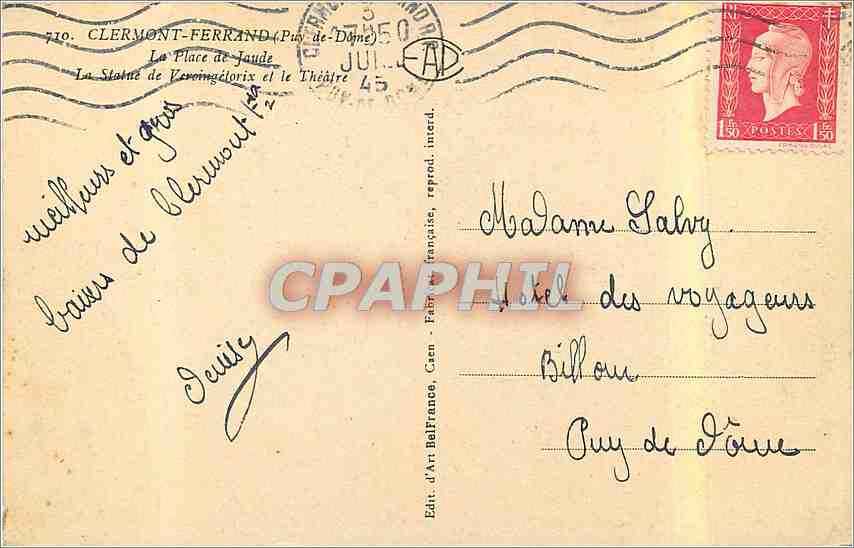 710. CLERMONT-FERRAND (Puy-de-Dôme)
La Place de Jaude
La Statue de Vercingétorix et le Théâtre
JUIL
45
RF
1 Fr. 50 POSTES 1 Fr. 50
meilleurs et gros
baisers de Clermont
Denise
Edit. d'Art BelFrance, Caen - Fabricat. française, reprod. interd.
CPAPHIL
Madame Salvy.
Hôtel des voyageurs
Billom
Puy de Dôme